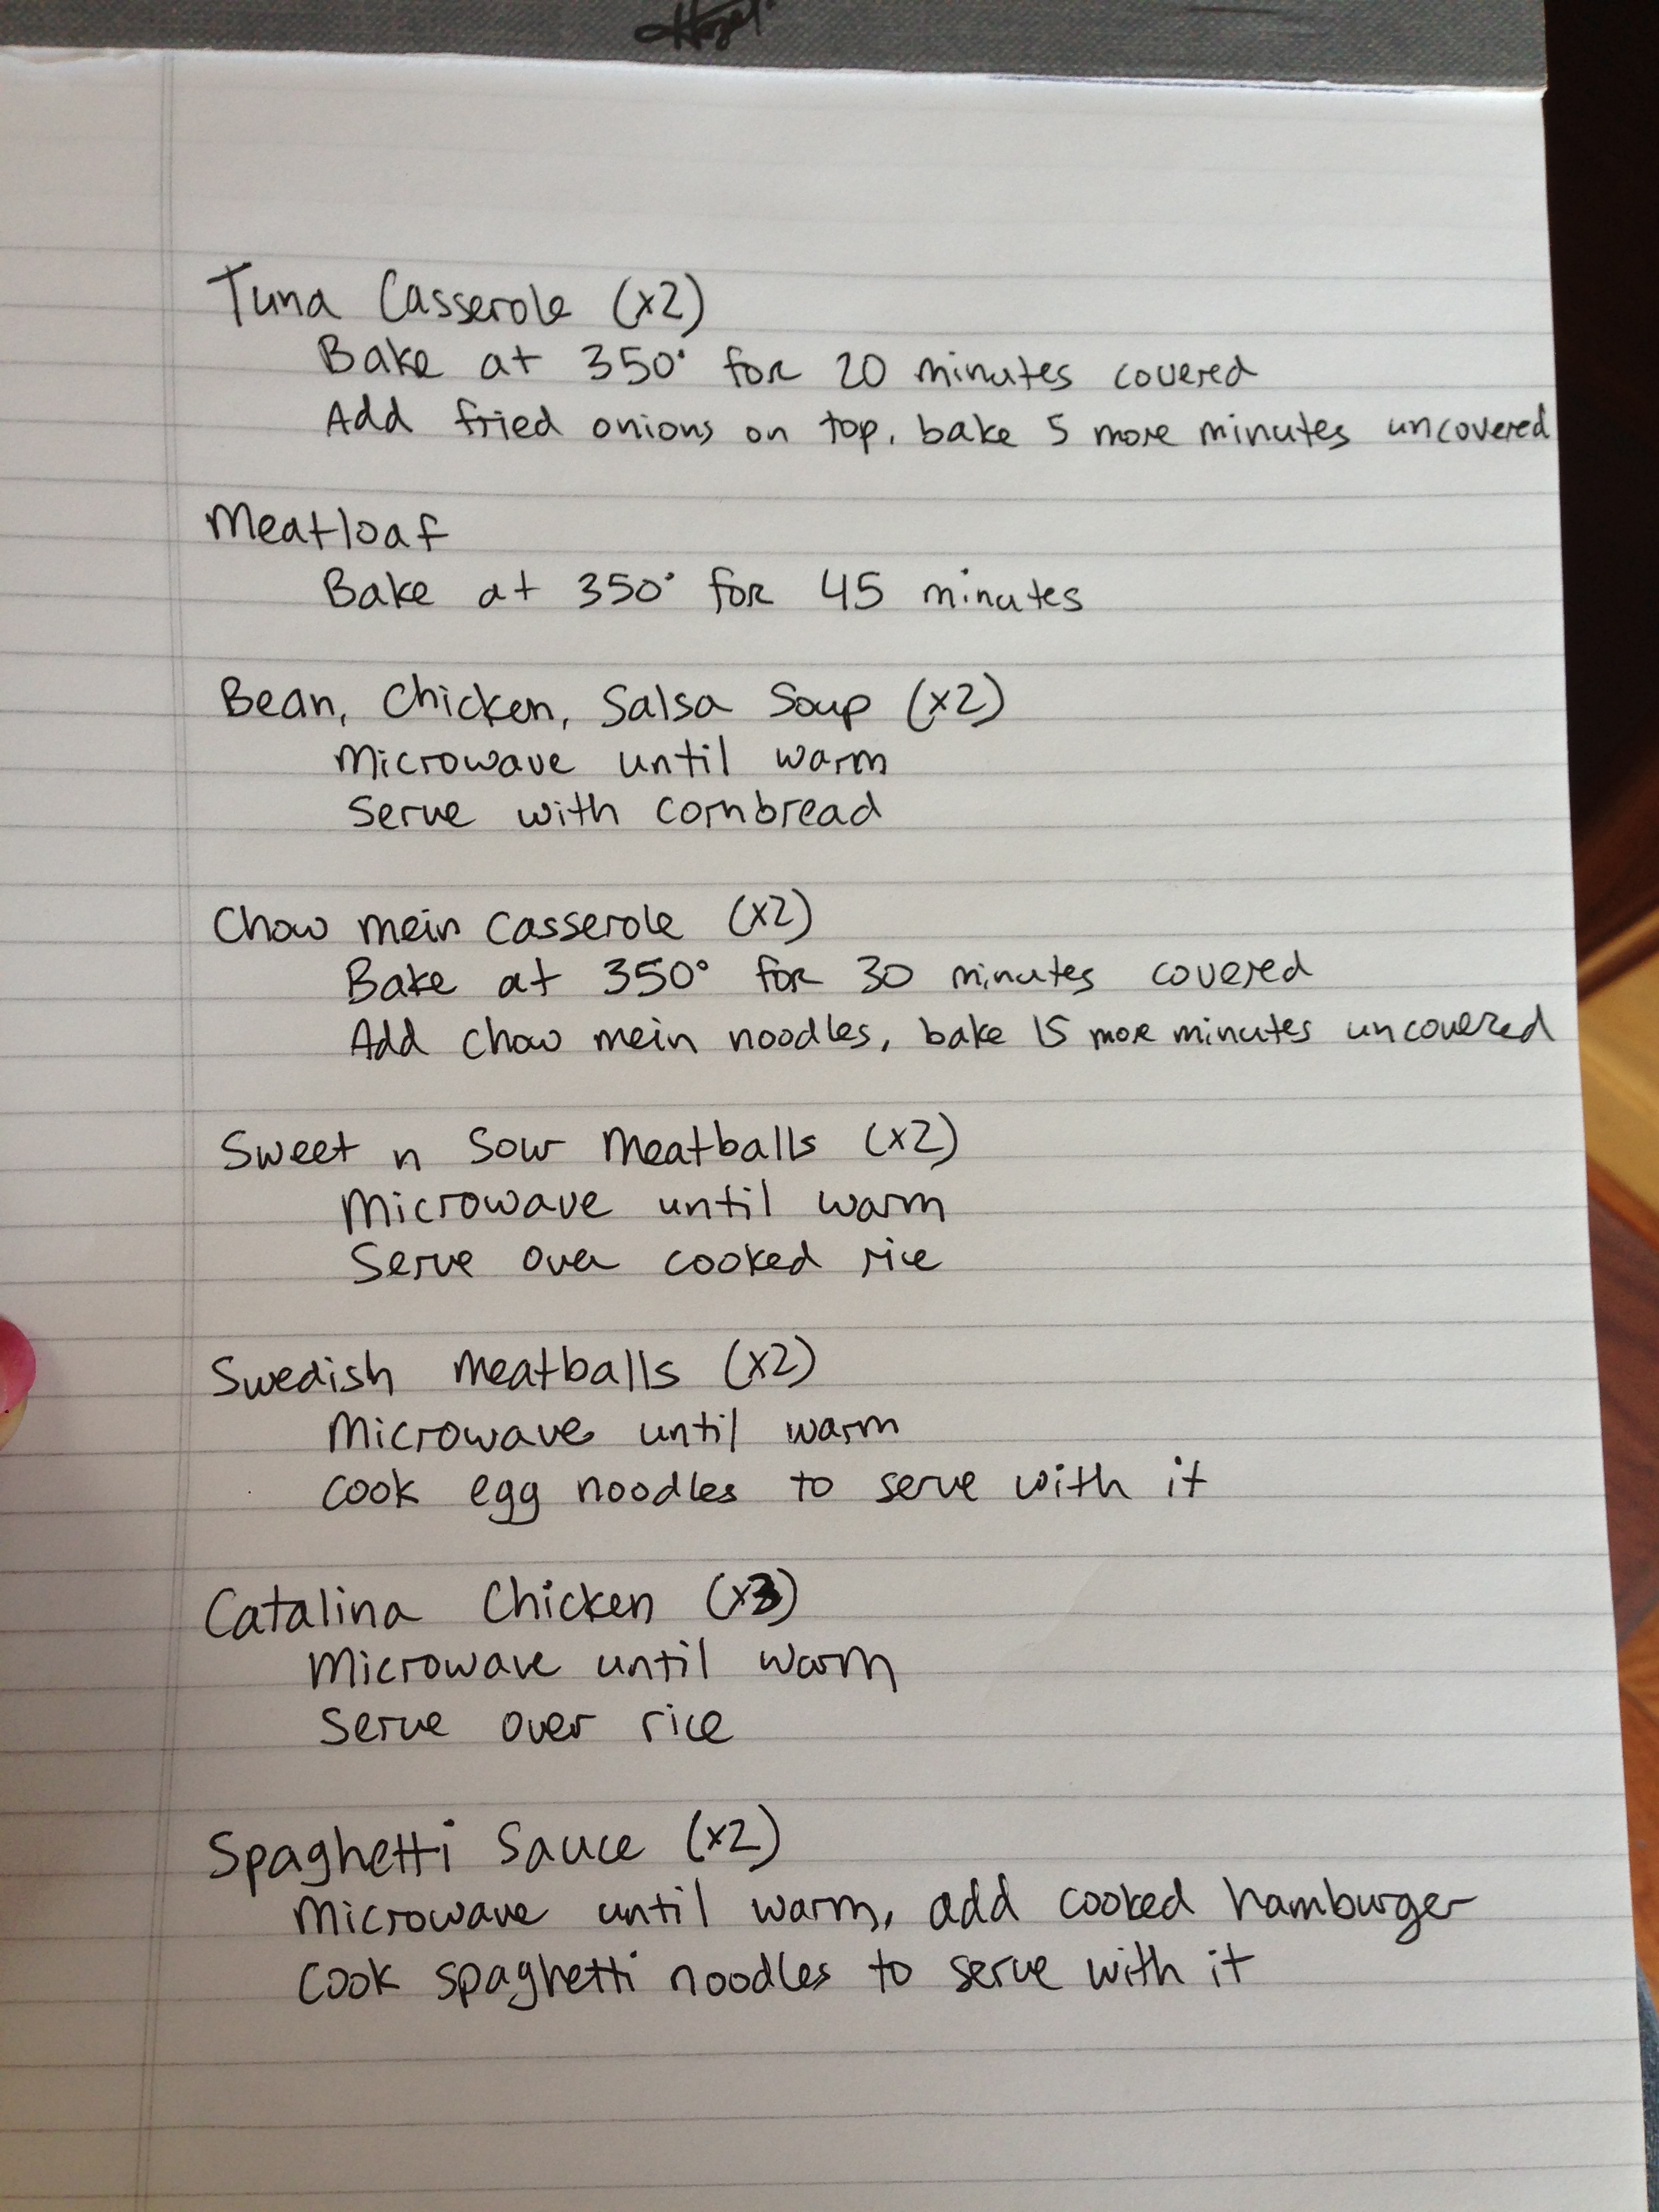 Tuna Casserole (x2)
Bake at 350° for 20 minutes covered
Add fried onions on top, bake 5 more minutes uncovered
Meatloaf
Bake at 350° for 45 minutes
Bean, Chicken, Salsa Soup (x2)
Microwave until warm
Serve with cornbread
Chow mein casserole (x2)
Bake at 350° for 30 minutes covered
Add chow mein noodles, bake 15 more minutes uncovered
Sweet n Sour Meatballs (x2)
Microwave until warm
Serve over cooked rice
Swedish Meatballs (x2)
Microwave until warm
Cook egg noodles to serve with it
Catalina Chicken (x3)
Microwave until warm
Serve over rice
Spaghetti Sauce (x2)
Microwave until warm, add cooked hamburger
Cook spaghetti noodles to serve with it